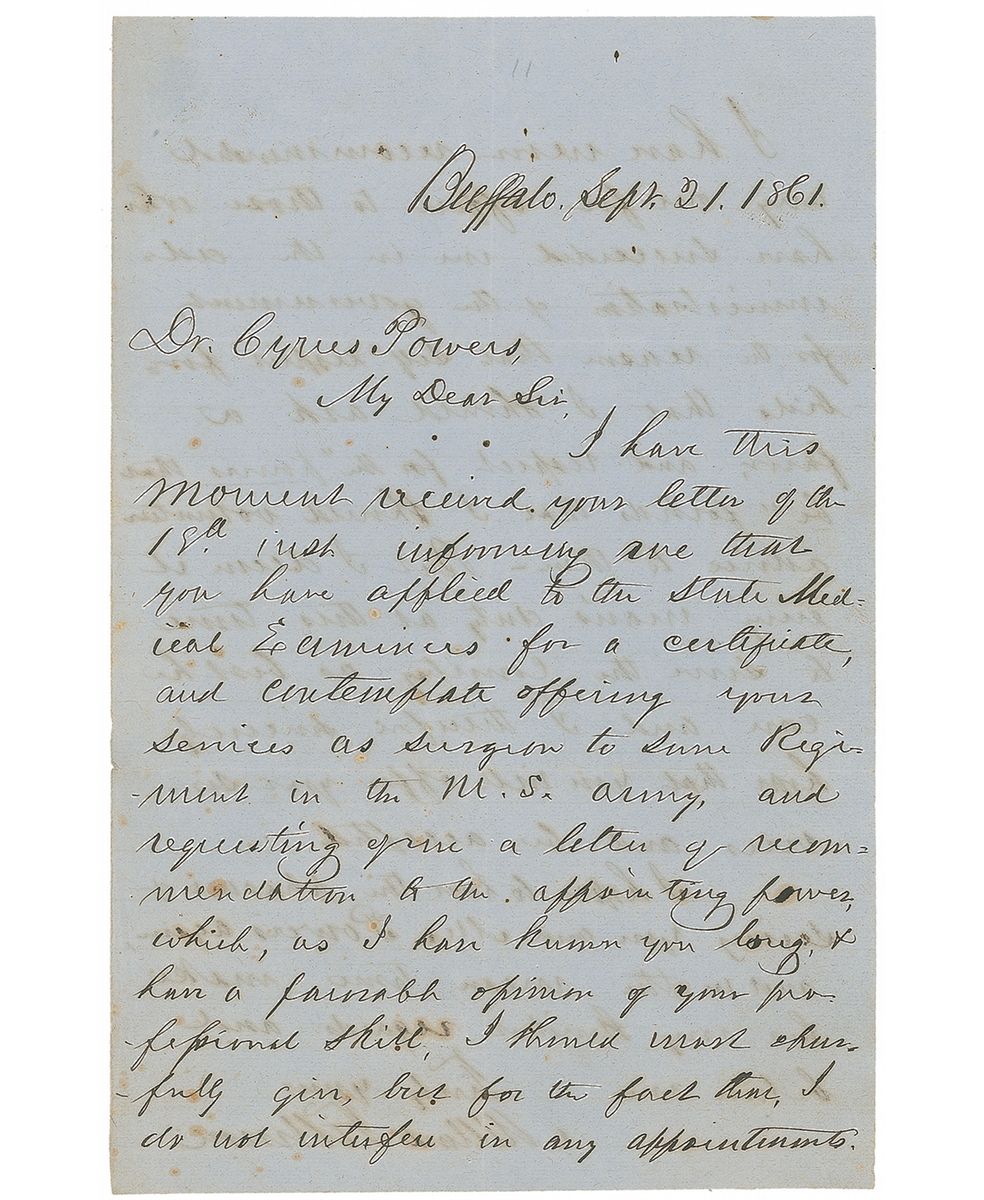 Buffalo. Sept. 21. 1861.
Dr. Cyrus Powers,
My Dear Sir,
I have this
moment received your letter of the
19th inst informing me that
you have applied to the State Med=
ical Examiners for a certificate,
and contemplate offering your
services as surgeon to some Regi-
-ment in the U. S. army, and
requesting of me a letter of recom=
mendation to the appointing power,
which, as I have known you long, &
have a favorable opinion of your pro-
-fessional skill, I should most cheer-
-fully give, but for the fact that, I
do not interfere in any appointments.